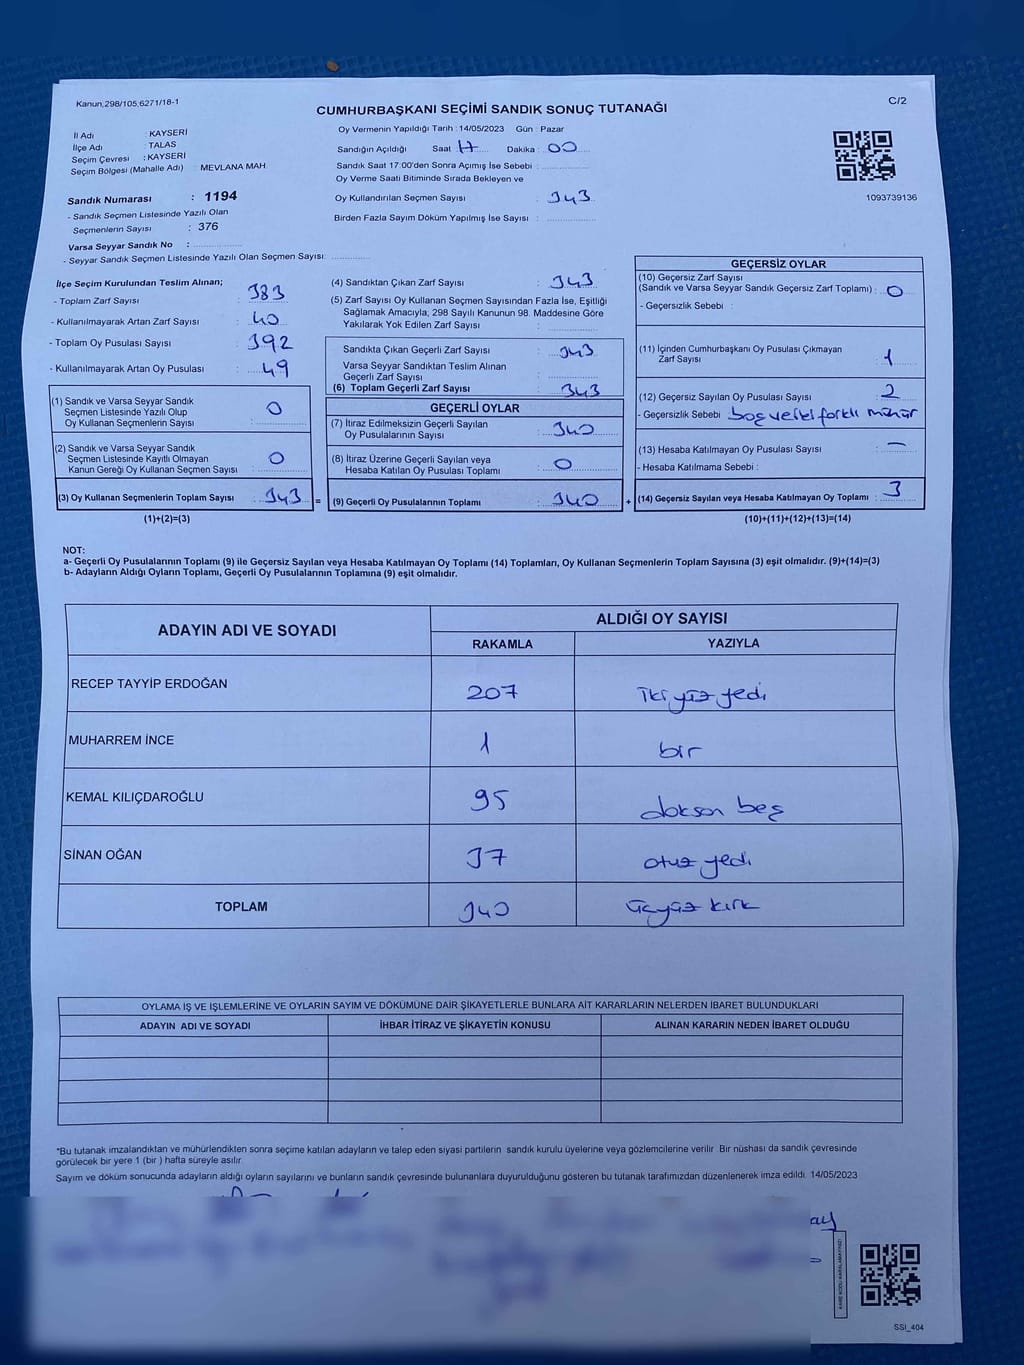 Kanun,298/105,6271/18-1
C/2
CUMHURBAŞKANI SEÇİMİ SANDIK SONUÇ TUTANAĞI
İl Adı : KAYSERİ
İlçe Adı : TALAS
Seçim Çevresi : KAYSERİ
Seçim Bölgesi (Mahalle Adı) : MEVLANA MAH.
Sandık Numarası : 1194
- Sandık Seçmen Listesinde Yazılı Olan
Seçmenlerin Sayısı : 376
Varsa Seyyar Sandık No :
- Seyyar Sandık Seçmen Listesinde Yazılı Olan Seçmen Sayısı:
Oy Vermenin Yapıldığı Tarih : 14/05/2023 Gün : Pazar
Sandığın Açıldığı Saat : 17 Dakika : 00
Sandık Saat 17:00'den Sonra Açımış İse Sebebi :
Oy Verme Saati Bitiminde Sırada Bekleyen ve
Oy Kullandırılan Seçmen Sayısı : 343
Birden Fazla Sayım Döküm Yapılmış İse Sayısı :
1093739136
İlçe Seçim Kurulundan Teslim Alınan;
- Toplam Zarf Sayısı : 383
- Kullanılmayarak Artan Zarf Sayısı : 40
- Toplam Oy Pusulası Sayısı : 392
- Kullanılmayarak Artan Oy Pusulası : 49
(1) Sandık ve Varsa Seyyar Sandık
Seçmen Listesinde Yazılı Olup
Oy Kullanan Seçmenlerin Sayısı : 0
(2) Sandık ve Varsa Seyyar Sandık
Seçmen Listesinde Kayıtlı Olmayan
Kanun Gereği Oy Kullanan Seçmen Sayısı : 0
(3) Oy Kullanan Seçmenlerin Toplam Sayısı : 343 =
(1)+(2)=(3)
(4) Sandıktan Çıkan Zarf Sayısı : 343
(5) Zarf Sayısı Oy Kullanan Seçmen Sayısından Fazla İse, Eşitliği
Sağlamak Amacıyla; 298 Sayılı Kanunun 98. Maddesine Göre
Yakılarak Yok Edilen Zarf Sayısı :
Sandıkta Çıkan Geçerli Zarf Sayısı : 343
Varsa Seyyar Sandıktan Teslim Alınan
Geçerli Zarf Sayısı :
(6) Toplam Geçerli Zarf Sayısı : 343
GEÇERLİ OYLAR
(7) İtiraz Edilmeksizin Geçerli Sayılan
Oy Pusulalarının Sayısı : 340
(8) İtiraz Üzerine Geçerli Sayılan veya
Hesaba Katılan Oy Pusulası Toplamı : 0
(9) Geçerli Oy Pusulalarının Toplamı : 340 +
GEÇERSİZ OYLAR
(10) Geçersiz Zarf Sayısı
(Sandık ve Varsa Seyyar Sandık Geçersiz Zarf Toplamı) : 0
- Geçersizlik Sebebi :
(11) İçinden Cumhurbaşkanı Oy Pusulası Çıkmayan
Zarf Sayısı : 1
(12) Geçersiz Sayılan Oy Pusulası Sayısı : 2
- Geçersizlik Sebebi : boş ve iki farklı mühür
(13) Hesaba Katılmayan Oy Pusulası Sayısı : —
- Hesaba Katılmama Sebebi :
(14) Geçersiz Sayılan veya Hesaba Katılmayan Oy Toplamı : 3
(10)+(11)+(12)+(13)=(14)
NOT:
a- Geçerli Oy Pusulalarının Toplamı (9) ile Geçersiz Sayılan veya Hesaba Katılmayan Oy Toplamı (14) Toplamları, Oy Kullanan Seçmenlerin Toplam Sayısına (3) eşit olmalıdır. (9)+(14)=(3)
b- Adayların Aldığı Oyların Toplamı, Geçerli Oy Pusulalarının Toplamına (9) eşit olmalıdır.
ADAYIN ADI VE SOYADI
ALDIĞI OY SAYISI
RAKAMLA YAZIYLA
RECEP TAYYİP ERDOĞAN 207 iki yüz yedi
MUHARREM İNCE 1 bir
KEMAL KILIÇDAROĞLU 95 doksan beş
SİNAN OĞAN 37 otuz yedi
TOPLAM 340 üçyüz kırk
OYLAMA İŞ VE İŞLEMLERİNE VE OYLARIN SAYIM VE DÖKÜMÜNE DAİR ŞİKAYETLERLE BUNLARA AİT KARARLARIN NELERDEN İBARET BULUNDUKLARI
ADAYIN ADI VE SOYADI İHBAR İTİRAZ VE ŞİKAYETİN KONUSU ALINAN KARARIN NEDEN İBARET OLDUĞU
*Bu tutanak imzalandıktan ve mühürlendikten sonra seçime katılan adayların ve talep eden siyasi partilerin sandık kurulu üyelerine veya gözlemcilerine verilir. Bir nüshası da sandık çevresinde
görülecek bir yere 1 (bir ) hafta süreyle asılır.
Sayım ve döküm sonucunda adayların aldığı oyların sayılarını ve bunların sandık çevresinde bulunanlara duyurulduğunu gösteren bu tutanak tarafımızdan düzenlenerek imza edildi. 14/05/2023
KARE KODU KARALAMAYINIZ!
SSI_404